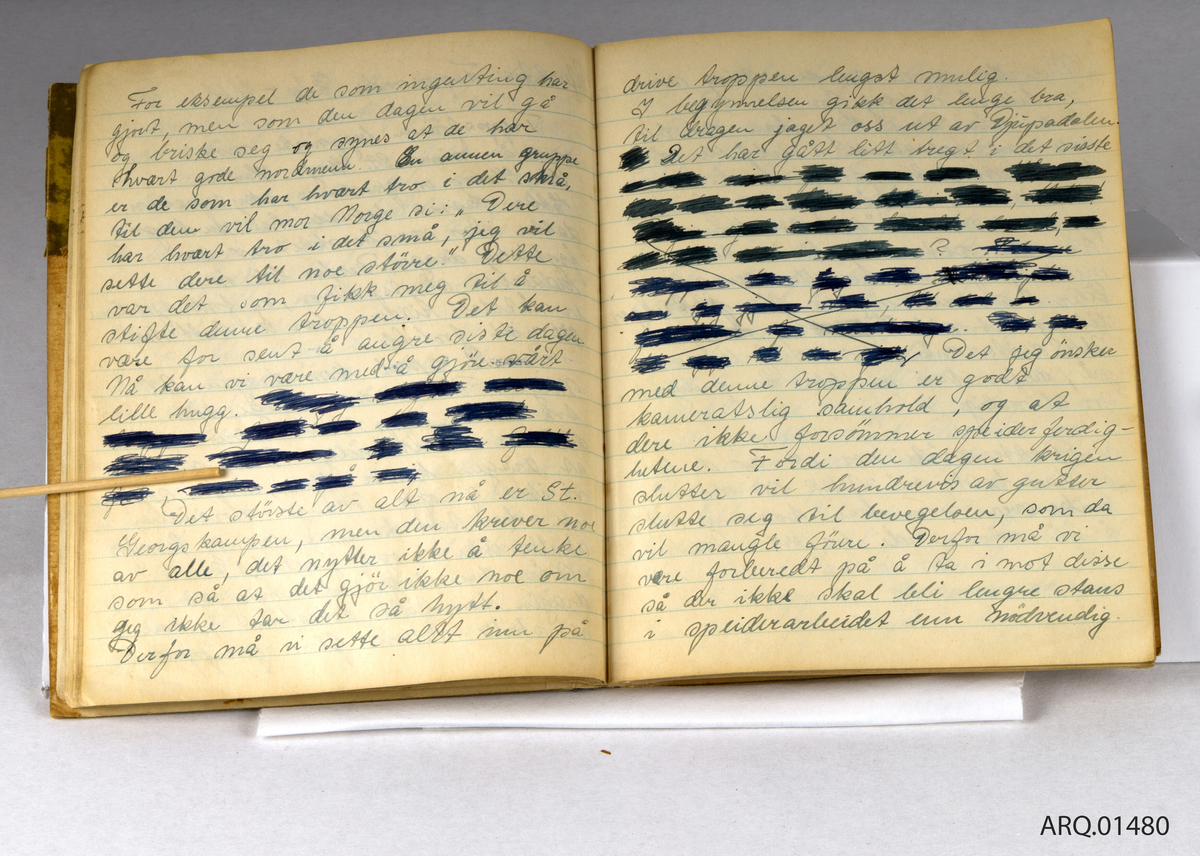 For eksempel de som ingenting har
gjort, men som den dagen vil gå
og briske seg og synes at de har
hvært gode nordmenn. En annen gruppe
er de som har hvært tro i det små,
til dem vil mor Norge si: „Dere
har hvært tro i det små, jeg vil
sette dere til noe större." Dette
var det som fikk meg til å
stifte denne troppen. Det kan
være for sent å angre siste dagen
Nå kan vi være med å gjöre vårt
lille hugg.
Det störste av alt nå er St.
Georgskampen, men den krever noe
av alle, det nytter ikke å tenke
som så at det gjör ikke noe om
jeg ikke tar det så höyt.
Derfor må vi sette alt inn på
drive troppen lengst mulig.
I begynnelsen gikk det lenge bra,
til dragen jaget oss ut av Djupadalen.
Det har gått litt tregt i det siste
?
Det jeg önsker
med denne troppen er godt
kameratslig samhold, og at
dere ikke forsömmer speiderferdig-
hetene. Fordi den dagen krigen
slutter vil hundrevis av gutter
slutte seg til bevegelsen, som da
vil mangle förere. Derfor må vi
være forberedt på å ta i mot disse
så der ikke skal bli lengre stans
i speiderarbeidet enn nödvendig.
ARQ.01480